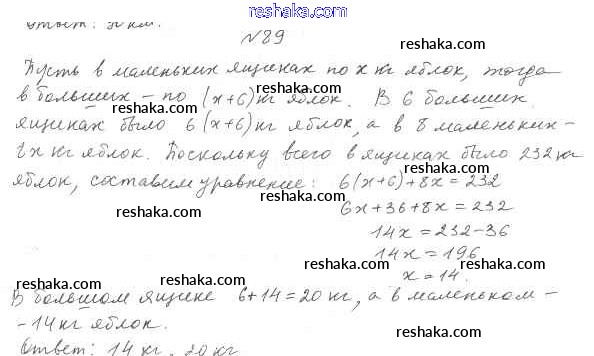 reshaka.com
Ответ: 30 км.
№89
reshaka.com
reshaka.com
Пусть в маленьких ящиках по x кг яблок, тогда
в больших – по (x+6) кг яблок. В 6 больших
reshaka.com
reshaka.com
ящиках было 6(x+6) кг яблок, а в 8 маленьких –
8x кг яблок. Поскольку всего в ящиках было 232 кг
reshaka.com
яблок, составим уравнение: 6(x+6)+8x=232
reshaka.com
6x+36+8x=232
reshaka.com
14x=232-36
14x=196
x=14.
reshaka.com
reshaka.com
В большом ящике 6+14=20 кг, а в маленьком –
- 14 кг яблок.
reshaka.com
reshaka.com
Ответ: 14 кг, 20 кг